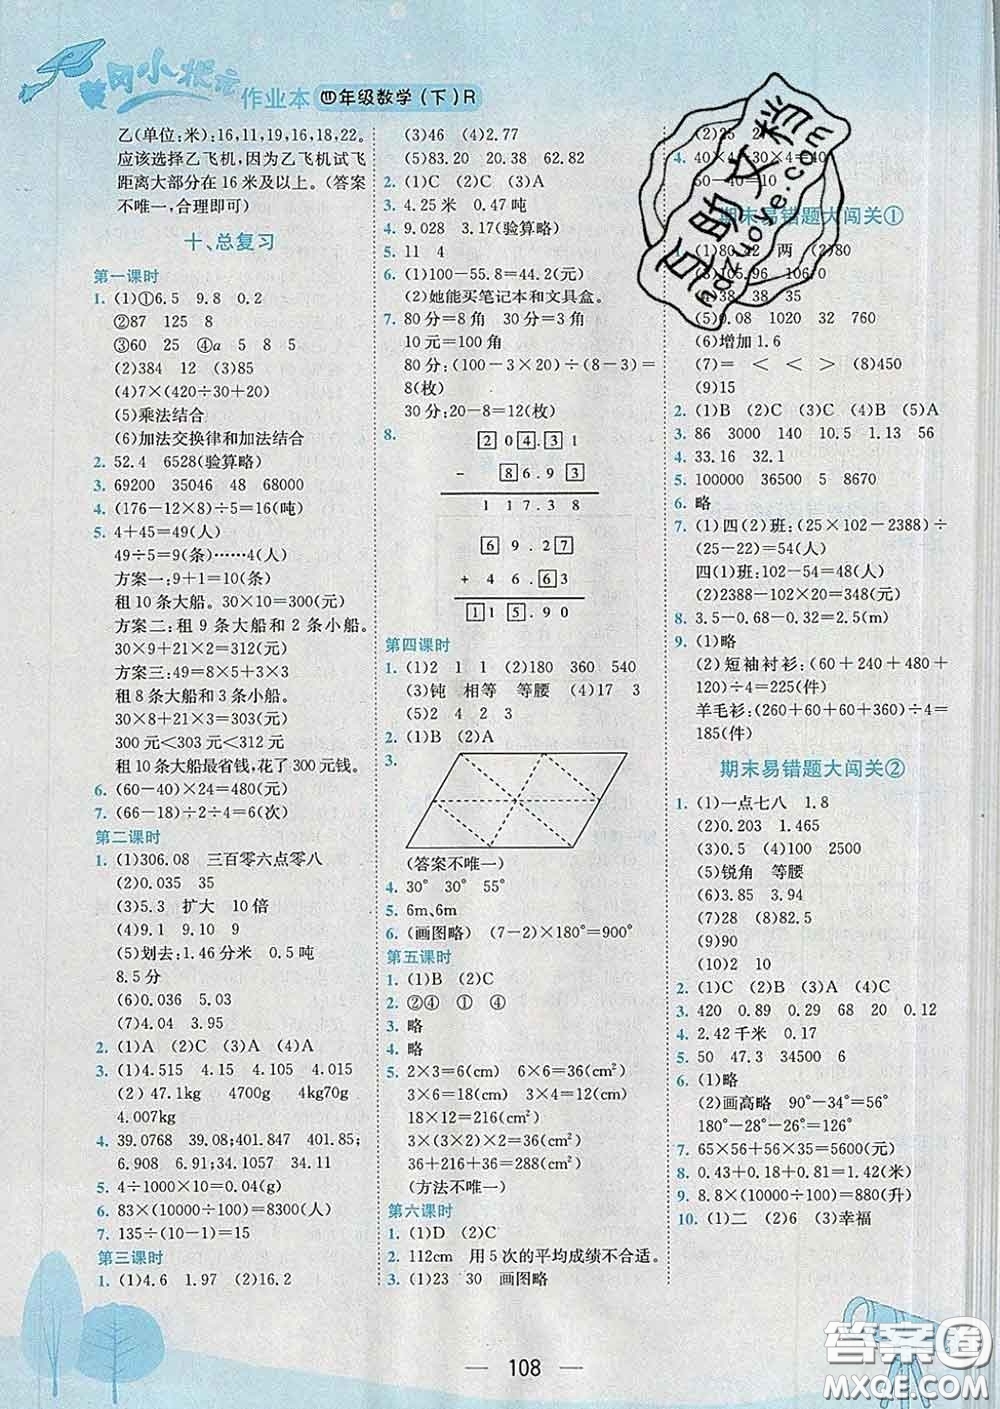 黄冈小状元
作业本 四年级数学(下)R
乙(单位:米):16,11,19,16,18,22。
应该选择乙飞机,因为乙飞机试飞
距离大部分在 16 米及以上。(答案
不唯一,合理即可)
十、总复习
第一课时
1. (1)①6.5 9.8 0.2
②87 125 8
③60 25 ④a 5 8 5
(2)384 12 (3)85
(4)7×(420÷30+20)
(5)乘法结合
(6)加法交换律和加法结合
2. 52.4 6528(验算略)
3. 69200 35046 48 68000
4. (176-12×8)÷5=16(吨)
5. 4+45=49(人)
49÷5=9(条)……4(人)
方案一:9+1=10(条)
租 10 条大船。30×10=300(元)
方案二:租 9 条大船和 2 条小船。
30×9+21×2=312(元)
方案三:49=8×5+3×3
租 8 条大船和 3 条小船。
30×8+21×3=303(元)
300 元<303 元<312 元
租 10 条大船最省钱,花了 300 元钱。
6. (60-40)×24=480(元)
7. (66-18)÷2÷4=6(次)
第二课时
1. (1)306.08 三百零六点零八
(2)0.035 35
(3)5.3 扩大 10 倍
(4)9.1 9.10 9
(5)划去:1.46 分米 0.5 吨
8.5 分
(6)0.036 5.03
(7)4.04 3.95
2. (1)A (2)C (3)A (4)A
3. (1)4.515 4.15 4.105 4.015
(2)47.1kg 4700g 4kg70g
4.007kg
4. 39.0768 39.08;401.8497
6.908 6.91;34.1057 34.11
5. 4÷1000×10=0.04(g)
6. 83×(10000÷100)=8300(人)
7. 135÷(10-1)=15
第三课时
1. (1)4.6 1.97 (2)16.2
(3)46 (4)2.77
(5)83.20 20.38 62.82
2. (1)C (2)C (3)A
3. 4.25 米 0.47 吨
4. 9.028 3.17(验算略)
5. 11 4
6. (1)100-55.8=44.2(元)
(2)她能买笔记本和文具盒。
7. 80 分=8 角 30 分=3 角
10 元=100 角
80 分:(100-3×20)÷(8-3)=
8(枚)
30 分:20-8=12(枚)
8. 2 0 4.3 1
- 8 6.9 3
1 1 7.3 8
6 9.2 7
+ 4 6.6 3
1 1 5.9 0
第四课时
1. (1)2 1 1 (2)180 360 540
(3)钝 相等 等腰 (4)17 3
(5)2 4 2 3
2. (1)B (2)A
3.
(答案不唯一)
4. 30° 30° 55°
5. 6m、6m
6. (画图略) (7-2)×180°=900°
第五课时
1. (1)B (2)C
2. ②④ ① ④
3. 略
4. 略
5. 2×3=6(cm) 6×6=36(cm²)
3×6=18(cm) 3×4=12(cm)
18×12=216(cm²)
3×(3×2)×2=36(cm²)
36+216+36=288(cm²)
(方法不唯一)
第六课时
1. (1)D (2)C
2. 112cm 用 5 次的平均成绩不合适。
3. (1)23 30 画图略
(2)25
4. 40×4-30×4=40
60-40=10
期末易错题大闯关①
(1)80.42 两 (2)80
(3)105.96 106.0
38 38 35
(5)0.08 1020 32 760
(6)增加 1.6
(7)= < < > (8)450
(9)15
2. (1)B (2)C (3)C (4)B (5)A
3. 86 3000 140 10.5 1.13 56
4. 33.16 32.1
5. 100000 36500 10 7870
6. 略
7. (1)四(2)班:(25×102-2388)÷
(25-22)=54(人)
四(1)班:102-54=48(人)
(2)2388-102×20=348(元)
8. 3.5-0.68-0.32=2.5(m)
9. (1)略
(2)短袖衬衫:(60+240+480+
120)÷4=225(件)
羊毛衫:(260+60+60+360)÷4=
185(件)
期末易错题大闯关②
1. (1)一点七八 1.8
(2)0.203 1.465
(3)0.5 (4)100 2500
(5)锐角 等腰
(6)3.85 3.94
(7)28 (8)82.5
(9)90
(10)2 10
2. (1)C (2)B (3)A (4)C
3. 420 0.89 0.68 20 0.29
4. 2.42千米 0.17
5. 50 47.3 34500 6
6. (1)略
(2)画高略 90°-34°=56°
180°-28°-26°=126°
7. 65×56+56×35=5600(元)
8. 0.43+0.18+0.81=1.42(米)
9. 8.8×(10000÷100)=880(升)
10. (1)二 (2)6 (3)幸福
108
答案圈
MXQE.COM